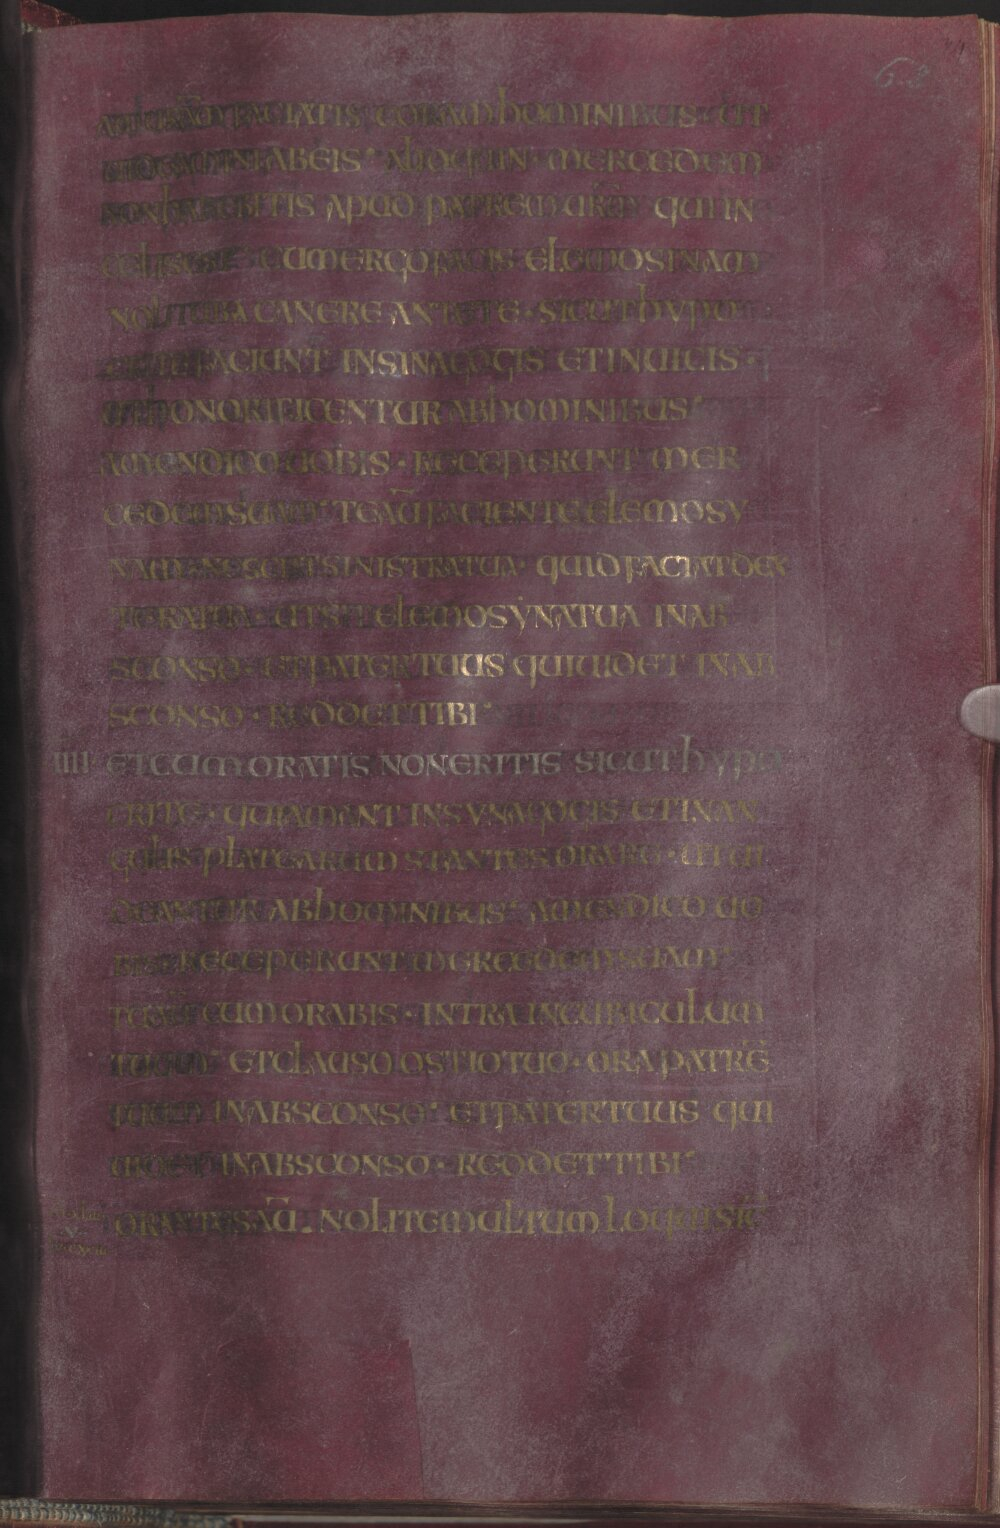 6.3
NE IUSTITIAM URAM FACIATIS CORAM hOMINIBUS · UT
UIDEAMINI AB EIS · ALIOQUIN · MERCEDEM
NON hABEBITIS APUD PATREM URM QUI IN
CAELIS EST CUM ERGO FACIS ELEMOSINAM
NOLI TUBA CANERE ANTE TE · SICUT hYPO
CRITE FACIUNT IN SINAGOGIS ET IN UICIS ·
UT hONORIFICENTUR AB hOMINIBUS
AMEN DICO UOBIS · RECEPERUNT MER
CEDEM SUAM TE AU FACIENTE ELEMOSY
NAM · NESCIAT SINISTRA TUA · QUID FACIAT DEX
TERA TUA · UT SIT ELEMOSYNA TUA IN AB
SCONSO · ET PATER TUUS QUI UIDET IN AB
SCONSO · REDDET TIBI
IIII ET CUM ORATIS NON ERITIS SICUT hYPO
CRITE · QUI AMANT IN SYNAGOGIS ET IN AN
GULIS PLATEARUM STANTES ORARE · UT UI
DEANTUR AB hOMINIBUS AMEN DICO UO
BIS RECEPERUNT MERCEDEM SUAM
TU AU CUM ORABIS · INTRA IN CUBICULUM
TUUM ET CLAUSO OSTIO TUO · ORA PATRE
TUUM IN ABSCONSO · ET PATER TUUS QUI
UIDET IN ABSCONSO · REDDET TIBI
ORANTES AU · NOLITE MULTUM LOQUI SIC